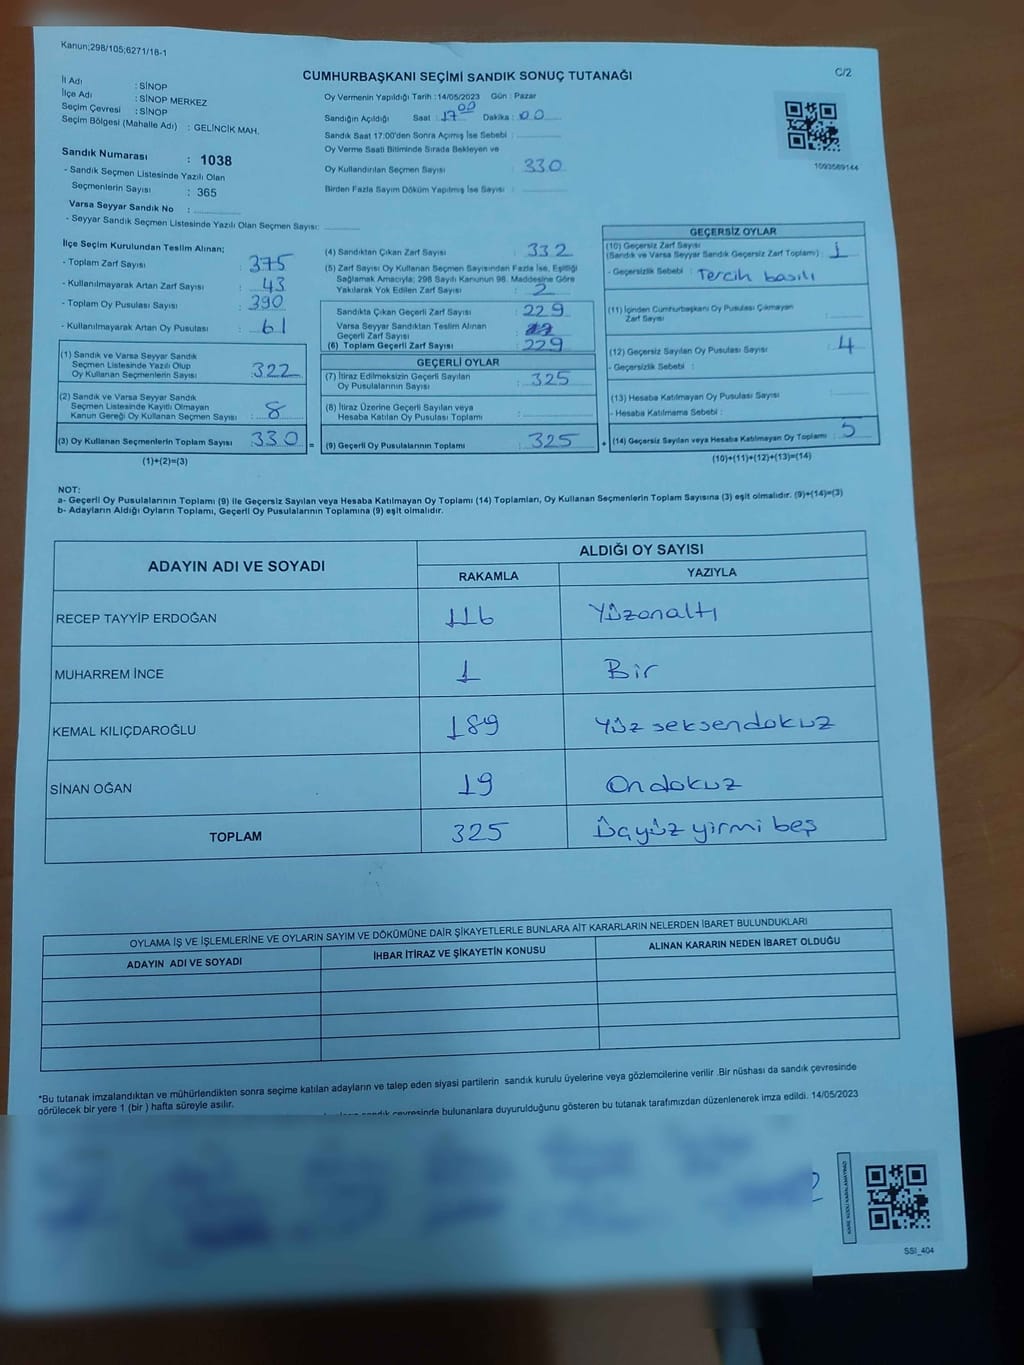 Kanun;298/105;6271/18-1
CUMHURBAŞKANI SEÇİMİ SANDIK SONUÇ TUTANAĞI
C/2
İl Adı : SİNOP
İlçe Adı : SİNOP MERKEZ
Seçim Çevresi : SİNOP
Seçim Bölgesi (Mahalle Adı) : GELİNCİK MAH.
Sandık Numarası : 1038
- Sandık Seçmen Listesinde Yazılı Olan
Seçmenlerin Sayısı : 365
Varsa Seyyar Sandık No :
- Seyyar Sandık Seçmen Listesinde Yazılı Olan Seçmen Sayısı:
Oy Vermenin Yapıldığı Tarih :14/05/2023 Gün : Pazar
Sandığın Açıldığı Saat : 17.00 Dakika : 00
Sandık Saat 17:00'den Sonra Açımış İse Sebebi :
Oy Verme Saati Bitiminde Sırada Bekleyen ve
Oy Kullandırılan Seçmen Sayısı : 330
Birden Fazla Sayım Döküm Yapılmış İse Sayısı :
1093589144
İlçe Seçim Kurulundan Teslim Alınan;
- Toplam Zarf Sayısı : 375
- Kullanılmayarak Artan Zarf Sayısı : 43
- Toplam Oy Pusulası Sayısı : 390
- Kullanılmayarak Artan Oy Pusulası : 61
(1) Sandık ve Varsa Seyyar Sandık
Seçmen Listesinde Yazılı Olup
Oy Kullanan Seçmenlerin Sayısı : 322
(2) Sandık ve Varsa Seyyar Sandık
Seçmen Listesinde Kayıtlı Olmayan
Kanun Gereği Oy Kullanan Seçmen Sayısı : 8
(3) Oy Kullanan Seçmenlerin Toplam Sayısı : 330 =
(1)+(2)=(3)
(4) Sandıktan Çıkan Zarf Sayısı : 332
(5) Zarf Sayısı Oy Kullanan Seçmen Sayısından Fazla İse, Eşitliği
Sağlamak Amacıyla; 298 Sayılı Kanunun 98. Maddesine Göre
Yakılarak Yok Edilen Zarf Sayısı : 2
Sandıkta Çıkan Geçerli Zarf Sayısı : 229
Varsa Seyyar Sandıktan Teslim Alınan
Geçerli Zarf Sayısı :
(6) Toplam Geçerli Zarf Sayısı : 229
GEÇERLİ OYLAR
(7) İtiraz Edilmeksizin Geçerli Sayılan
Oy Pusulalarının Sayısı : 325
(8) İtiraz Üzerine Geçerli Sayılan veya
Hesaba Katılan Oy Pusulası Toplamı :
(9) Geçerli Oy Pusulalarının Toplamı : 325 +
GEÇERSİZ OYLAR
(10) Geçersiz Zarf Sayısı
(Sandık ve Varsa Seyyar Sandık Geçersiz Zarf Toplamı) : 1
- Geçersizlik Sebebi : Tercih basılı
(11) İçinden Cumhurbaşkanı Oy Pusulası Çıkmayan
Zarf Sayısı :
(12) Geçersiz Sayılan Oy Pusulası Sayısı : 4
- Geçersizlik Sebebi :
(13) Hesaba Katılmayan Oy Pusulası Sayısı :
- Hesaba Katılmama Sebebi :
(14) Geçersiz Sayılan veya Hesaba Katılmayan Oy Toplamı : 5
(10)+(11)+(12)+(13)=(14)
NOT:
a- Geçerli Oy Pusulalarının Toplamı (9) ile Geçersiz Sayılan veya Hesaba Katılmayan Oy Toplamı (14) Toplamları, Oy Kullanan Seçmenlerin Toplam Sayısına (3) eşit olmalıdır. (9)+(14)=(3)
b- Adayların Aldığı Oyların Toplamı, Geçerli Oy Pusulalarının Toplamına (9) eşit olmalıdır.
ADAYIN ADI VE SOYADI
ALDIĞI OY SAYISI
RAKAMLA YAZIYLA
RECEP TAYYİP ERDOĞAN 116 Yüzonaltı
MUHARREM İNCE 1 Bir
KEMAL KILIÇDAROĞLU 189 Yüz seksendokuz
SİNAN OĞAN 19 Ondokuz
TOPLAM 325 Üçyüz yirmi beş
OYLAMA İŞ VE İŞLEMLERİNE VE OYLARIN SAYIM VE DÖKÜMÜNE DAİR ŞİKAYETLERLE BUNLARA AİT KARARLARIN NELERDEN İBARET BULUNDUKLARI
ADAYIN ADI VE SOYADI İHBAR İTİRAZ VE ŞİKAYETİN KONUSU ALINAN KARARIN NEDEN İBARET OLDUĞU
*Bu tutanak imzalandıktan ve mühürlendikten sonra seçime katılan adayların ve talep eden siyasi partilerin sandık kurulu üyelerine veya gözlemcilerine verilir .Bir nüshası da sandık çevresinde
görülecek bir yere 1 (bir ) hafta süreyle asılır.
sandık çevresinde bulunanlara duyurulduğunu gösteren bu tutanak tarafımızdan düzenlenerek imza edildi. 14/05/2023
KARE KODU KARALAMAYINIZ
SSI_404